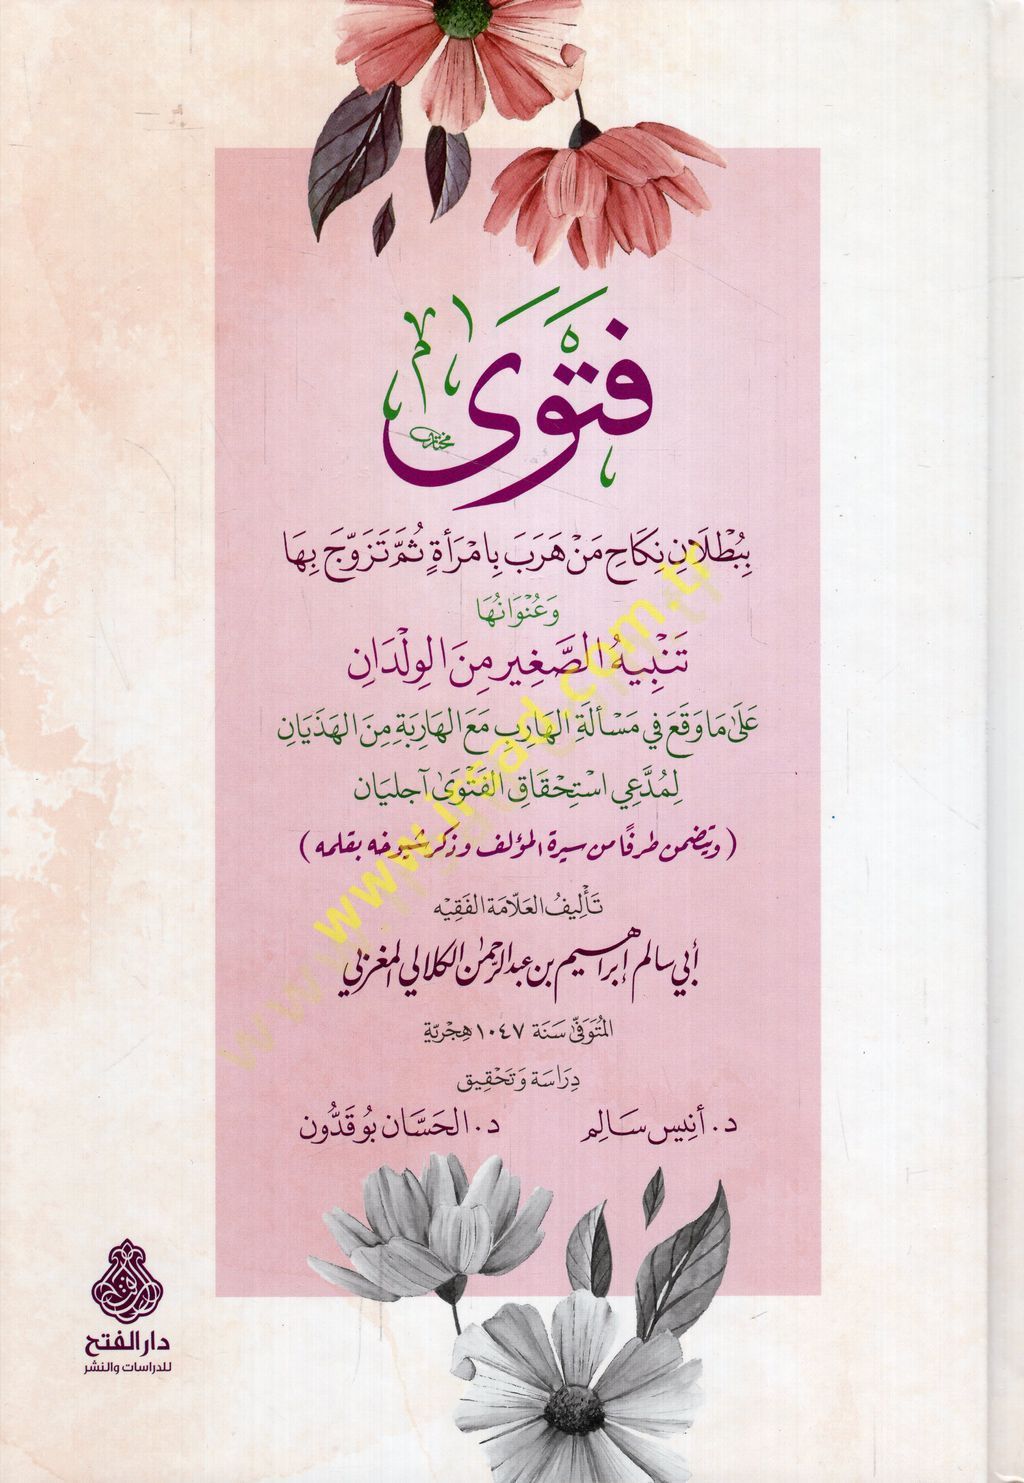 فَتْوَى
مختار
بِبُطْلَانِ نِكَاحِ مَنْ هَرَبَ بِامْرَأَةٍ ثُمَّ تَزَوَّجَ بِهَا
وَعُنْوَانُهَا
تَنْبِيهُ الصَّغِيرِ مِنَ الوِلْدَانِ
عَلَى مَا وَقَعَ فِي مَسْأَلَةِ الهَارِبِ مَعَ الهَارِبَةِ مِنَ الهَذَيَانِ
لِمُدَّعِي اسْتِحْقَاقِ الفَتْوَى آجليَان
(ويتضمن طرفًا من سيرة المؤلف وذكر شيوخه بقلمه)
تَأْلِيفُ العَلَّامَةِ الفَقِيْه
أبي سالم إبراهيم بن عبد الرحمن الكلالي المغربي
المُتَوَفَّى سَنَة ١٠٤٧ هِجْرِيّة
دِرَاسَة وَتَحْقِيق
د. أَنِيس سَالِم د. الحَسَّان بُوقَدُّون
www.irsad.com.tr
دار الفتح
للدراسات والنشر